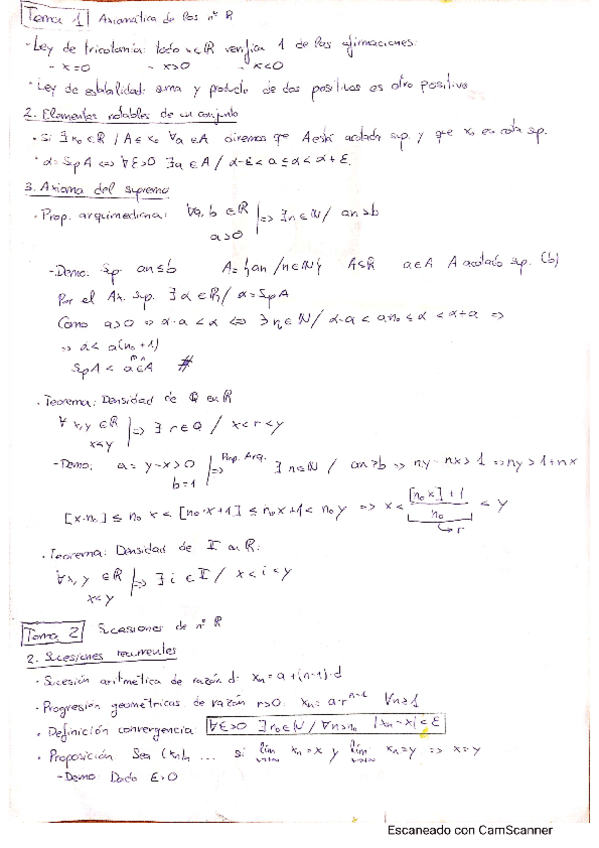 Tema 1 Axiomática de los nº R
- Ley de tricotomía: todo x∈R verifica 1 de las afirmaciones:
- x=0 - x>0 - x<0
· Ley de estabilidad: suma y producto de dos positivos es otro positivo
2. Elementos notables de un conjunto
· Si ∃ x₀ ∈ R / A ≤ x₀ ∀a∈A diremos que A está acotada sup. y que x₀ es cota sup.
· α = Sp A <=> ∀ε>0 ∃a∈A / α-ε < a ≤ α < α+ε.
3. Axioma del supremo
· Prop. arquimediana: ∀a,b ∈ R | => ∃n∈N / an>b
a>0
- Demo: Sp. an≤b A={an / n∈N} A⊆R a∈A A acotado sup. (b)
Por el Ax. Sup. ∃ α∈R / α=Sp A
Como a>0 => α-a < α <=> ∃n₀∈N / α-a < an₀ ≤ α < α+a =>
=> α < a(n₀+1)
Sp A < a∈A #
· Teorema: Densidad de Q en R
∀ x,y ∈R | => ∃ r∈Q / x<r<y
x<y
- Demo: a = y-x>0 | Prop. Arq. => ∃ n∈N / an>b => ny-nx>1 => ny>1+nx
b=1
[x·n₀] ≤ n₀x < [n₀·x+1] ≤ n₀x+1 < n₀y => x < [n₀x]+1 / n₀ < y
r
· Teorema: Densidad de I en R:
∀x,y ∈R | => ∃ i∈I / x<i<y
x<y
Tema 2 Sucesiones de nº R
2. Sucesiones recurrentes
· Sucesión aritmética de razón d: xₙ = a+(n-1)·d
· Progresión geométricas de razón r>0: xₙ = a·rⁿ⁻¹ ∀n≥1
· Definición convergencia: ∀ε>0 ∃n₀∈N / ∀n>n₀ |xₙ-x|<ε
· Proposición Sea (xₙ)ₙ ... si lim xₙ=x y lim xₙ=y => x=y
- Demo: Dado ε>0
Escaneado con CamScanner